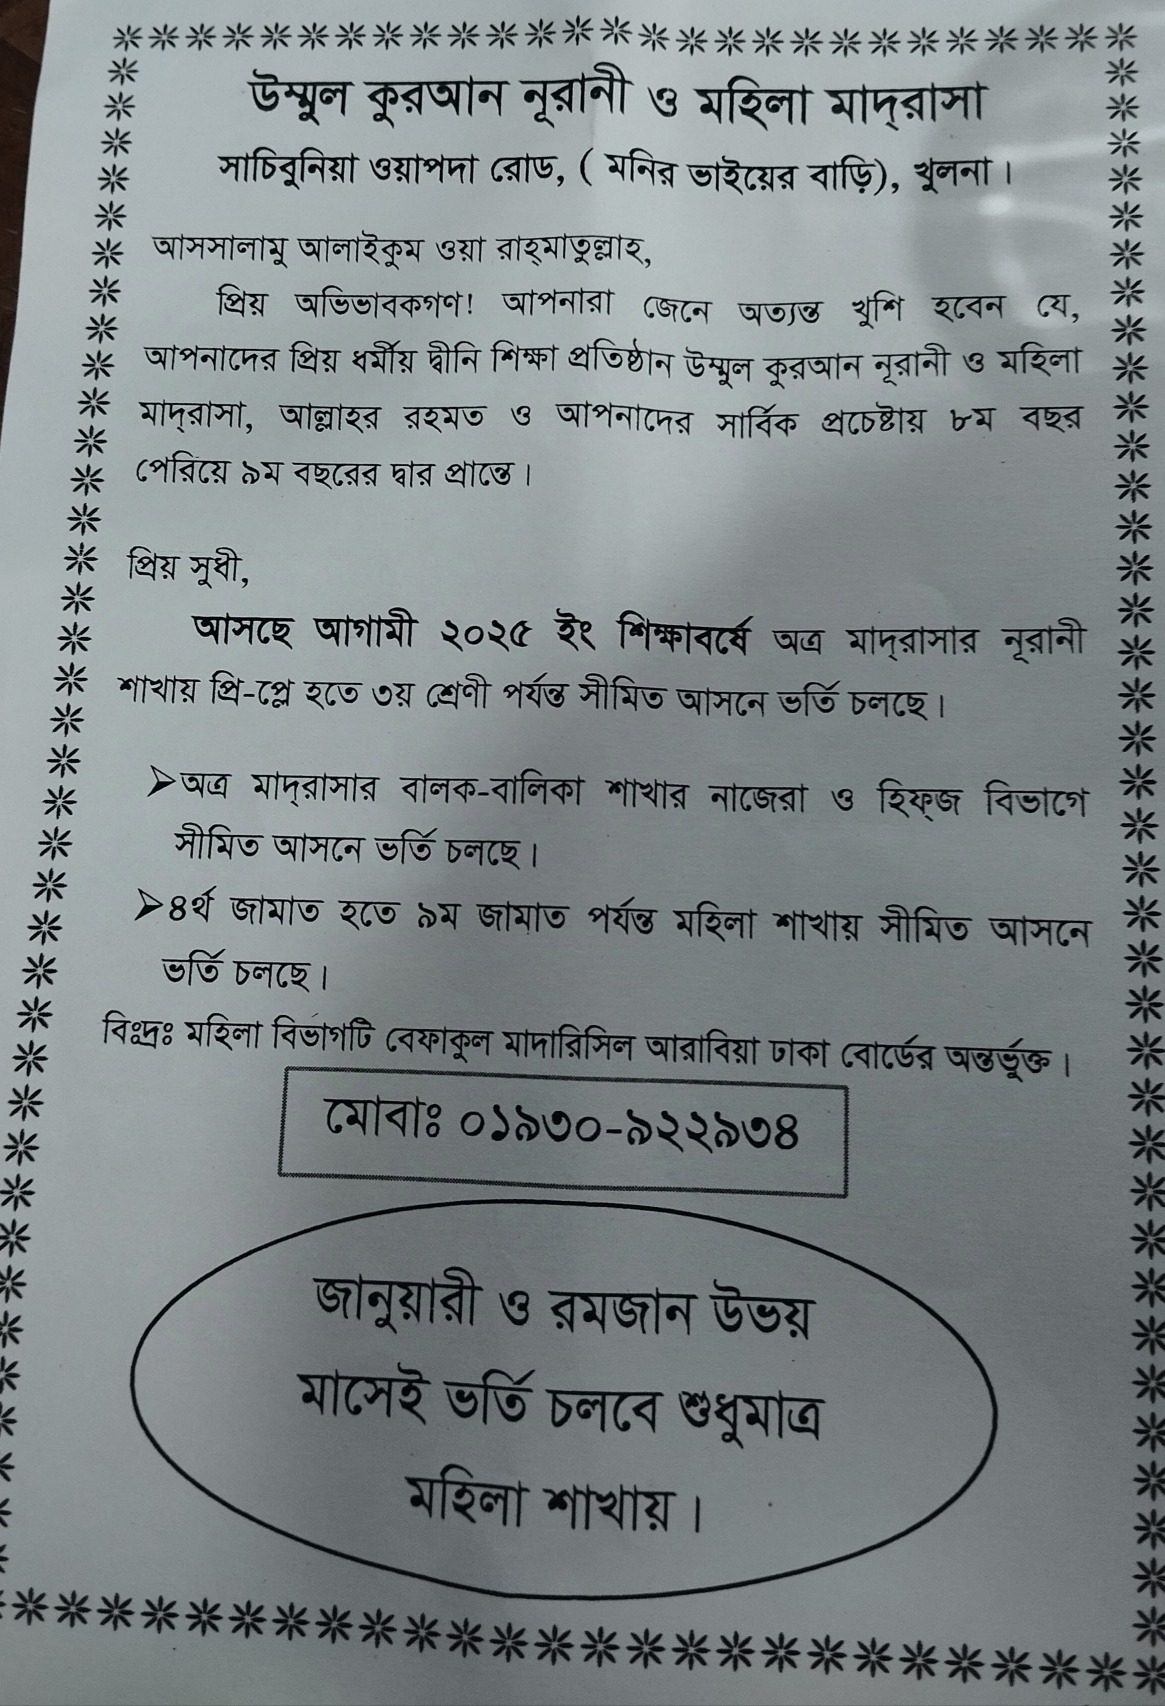 উম্মুল কুরআন নূরানী ও মহিলা মাদ্‌রাসা
সাচিবুনিয়া ওয়াপদা রোড, ( মনির ভাইয়ের বাড়ি), খুলনা।
আসসালামু আলাইকুম ওয়া রাহ্‌মাতুল্লাহ,
প্রিয় অভিভাবকগণ! আপনারা জেনে অত্যন্ত খুশি হবেন যে,
আপনাদের প্রিয় ধর্মীয় দ্বীনি শিক্ষা প্রতিষ্ঠান উম্মুল কুরআন নূরানী ও মহিলা
মাদ্‌রাসা, আল্লাহর রহমত ও আপনাদের সার্বিক প্রচেষ্টায় ৮ম বছর
পেরিয়ে ৯ম বছরের দ্বার প্রান্তে।
প্রিয় সুধী,
আসছে আগামী ২০২৫ ইং শিক্ষাবর্ষে অত্র মাদ্‌রাসার নূরানী
শাখায় প্রি-প্লে হতে ৩য় শ্রেণী পর্যন্ত সীমিত আসনে ভর্তি চলছে।
➢অত্র মাদ্‌রাসার বালক-বালিকা শাখার নাজেরা ও হিফ্‌জ বিভাগে
সীমিত আসনে ভর্তি চলছে।
➢৪র্থ জামাত হতে ৯ম জামাত পর্যন্ত মহিলা শাখায় সীমিত আসনে
ভর্তি চলছে।
বিঃদ্রঃ মহিলা বিভাগটি বেফাকুল মাদারিসিল আরাবিয়া ঢাকা বোর্ডের অন্তর্ভূক্ত।
মোবাঃ ০১৯৩০-৯২২৯৩৪
জানুয়ারী ও রমজান উভয়
মাসেই ভর্তি চলবে শুধুমাত্র
মহিলা শাখায়।